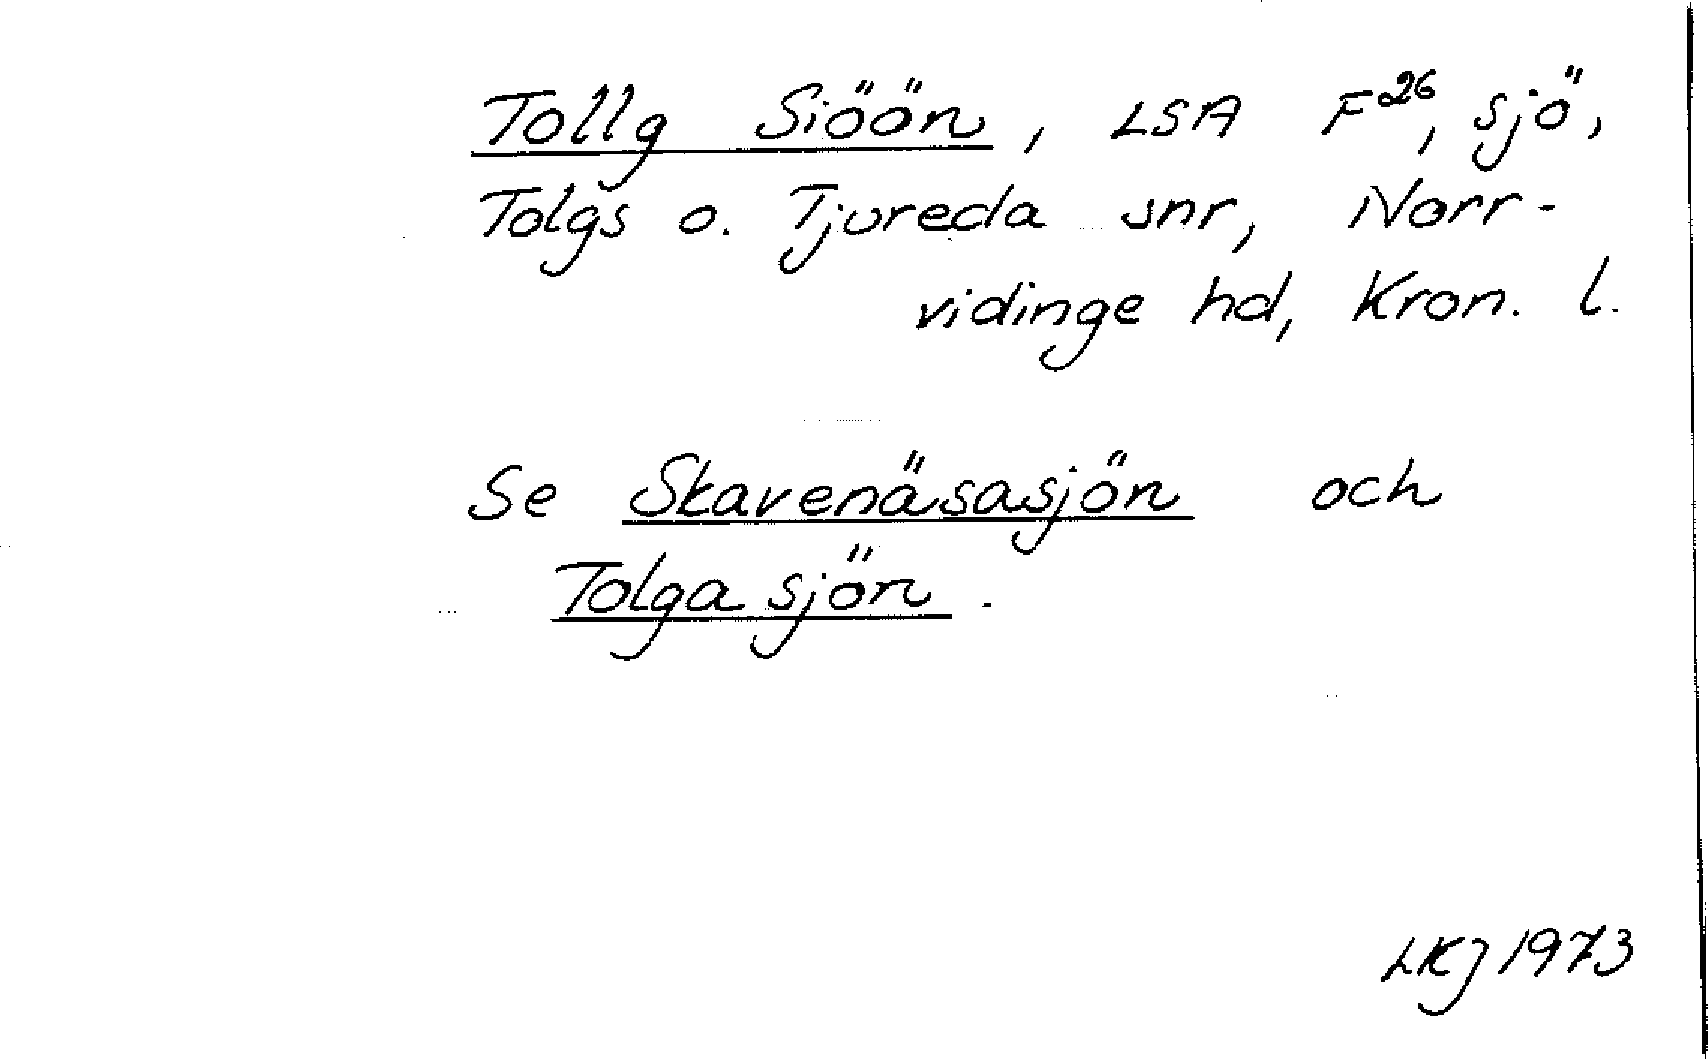 Tollg Siöön, LSA F26, sjö,
Tolgs o. Tjureda snr, Norr-
vidinge hd, Kron. l.
Se Skavenäsasjön och
Tolgasjön.
LKJ 1973